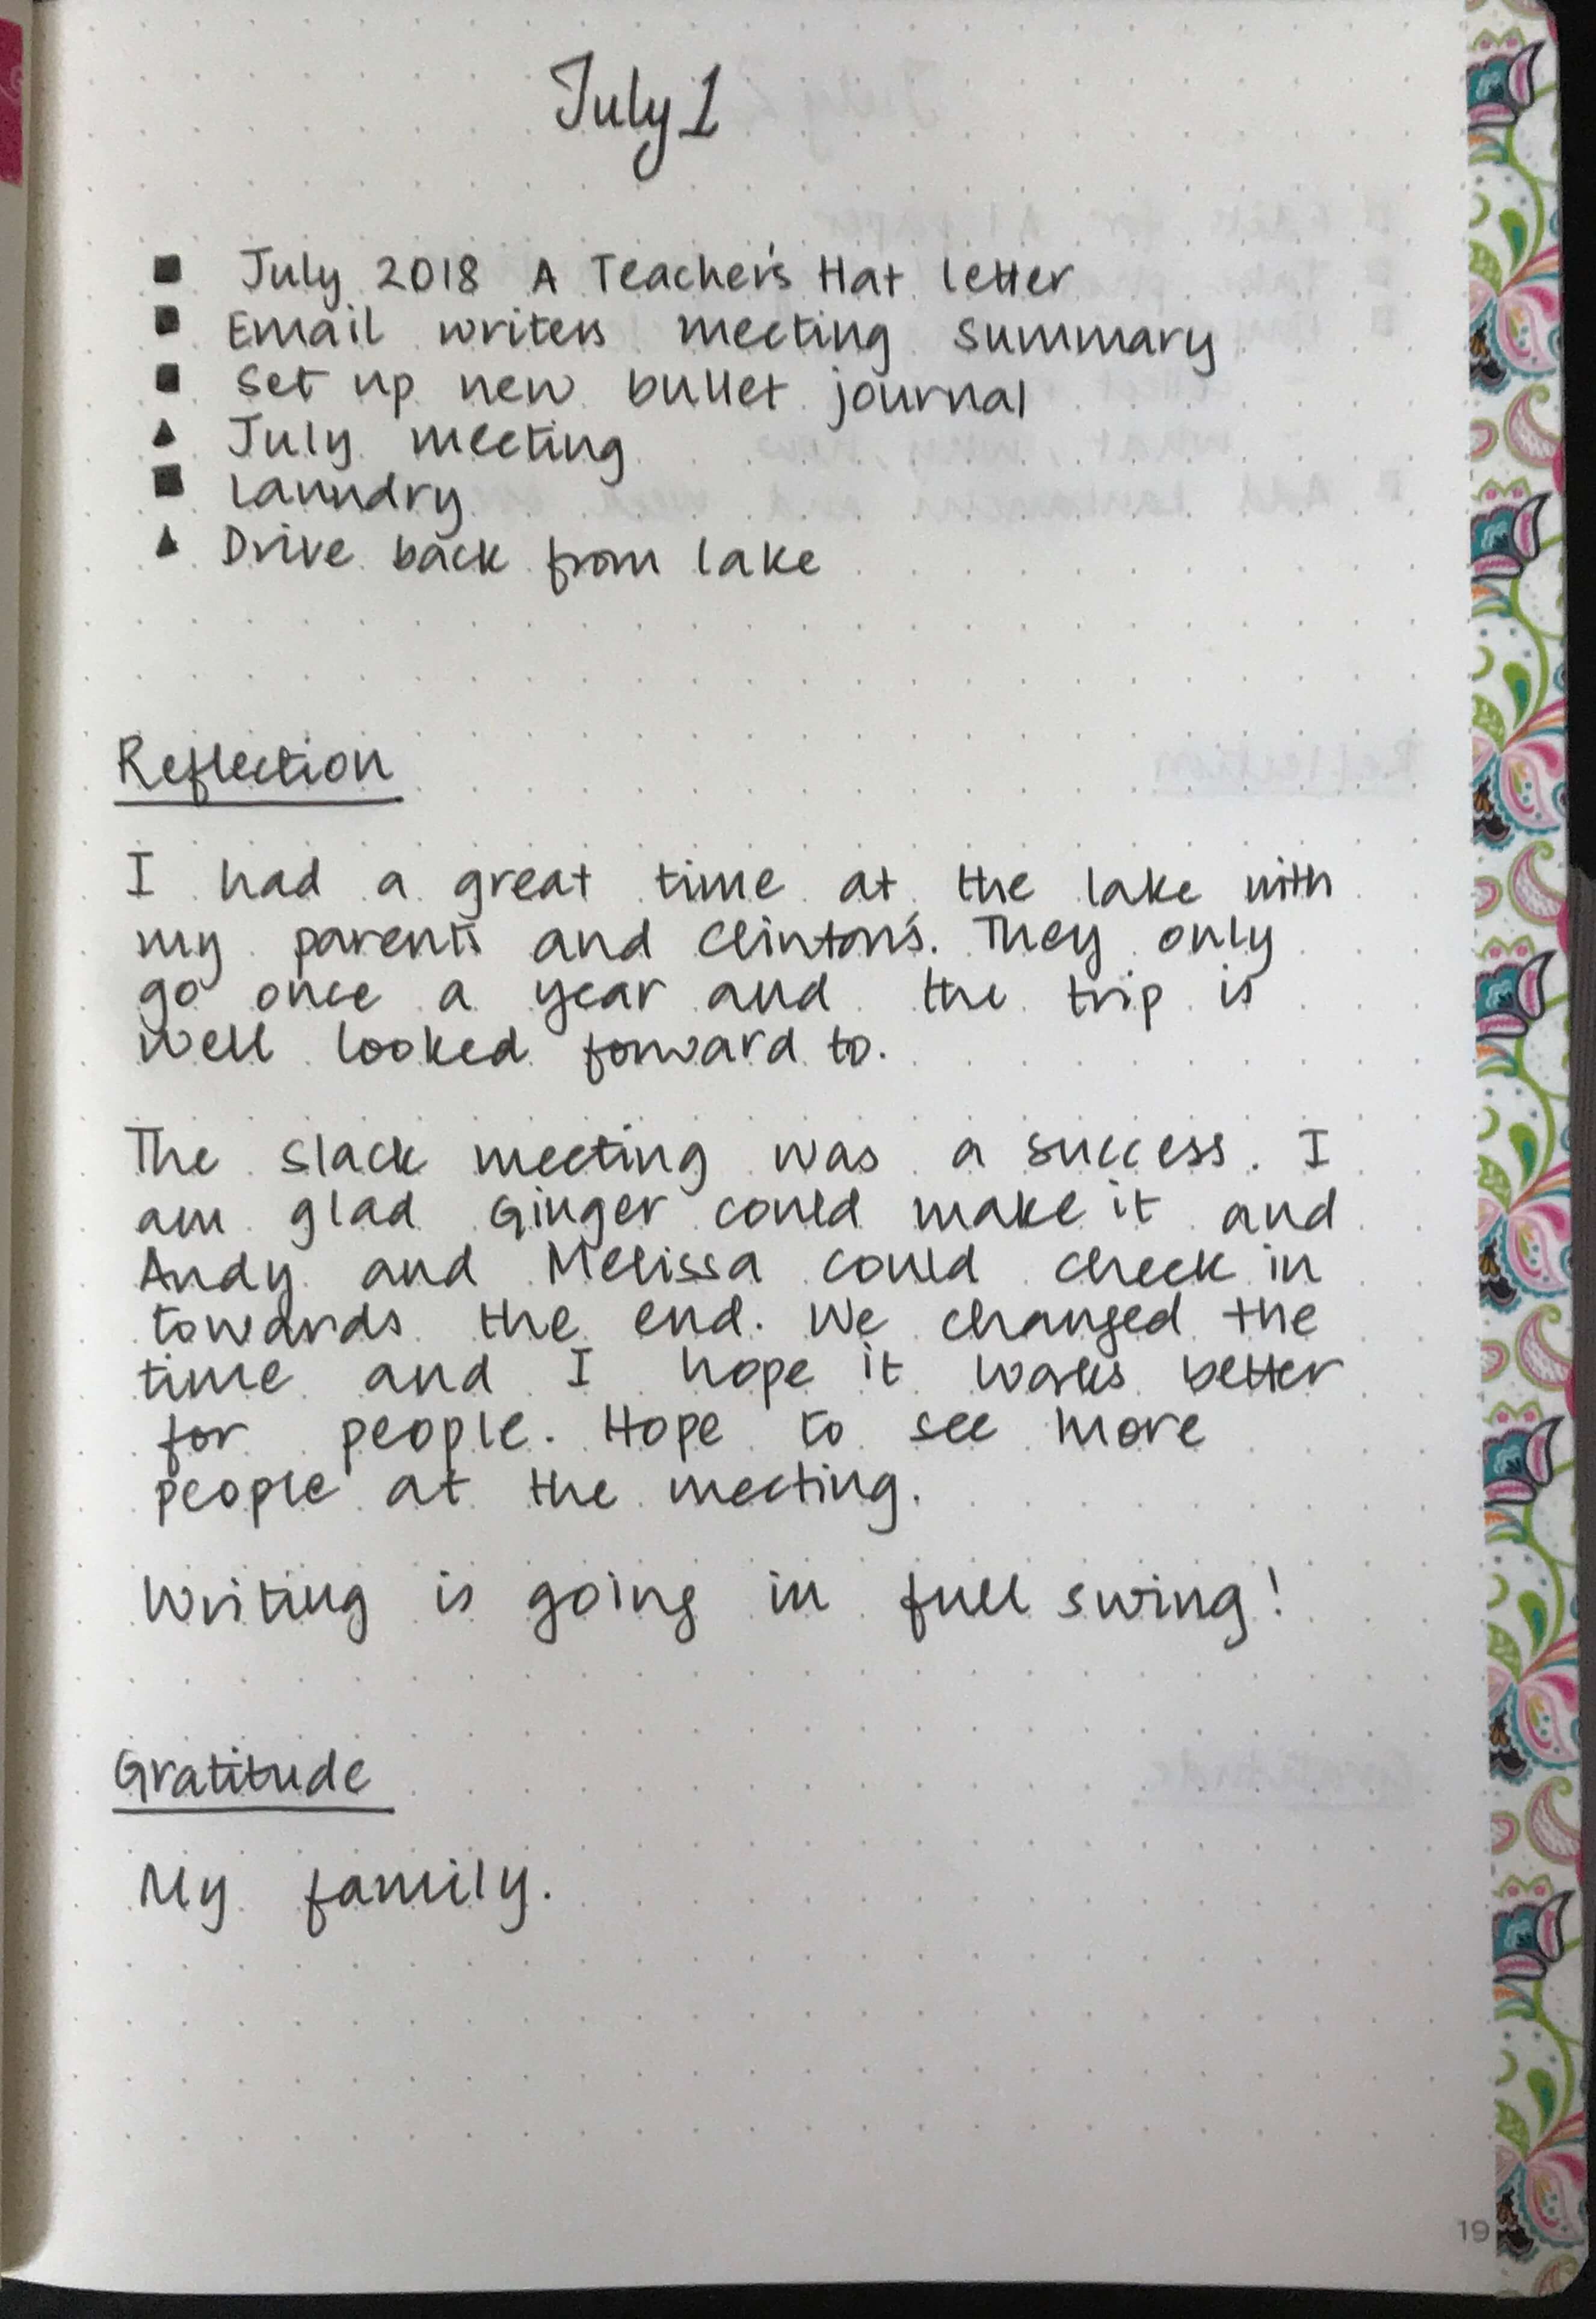 July 1
■ July 2018 A Teacher's Hat letter
■ Email writers meeting summary
■ Set up new bullet journal
▲ July meeting
■ Laundry
▲ Drive back from lake
Reflection
I had a great time at the lake with
my parents and Clinton's. They only
go once a year and the trip is
well looked forward to.
The slack meeting was a success. I
am glad Ginger could make it and
Andy and Melissa could check in
towards the end. We changed the
time and I hope it works better
for people. Hope to see more
people at the meeting.
Writing is going in full swing!
Gratitude
My family.
19